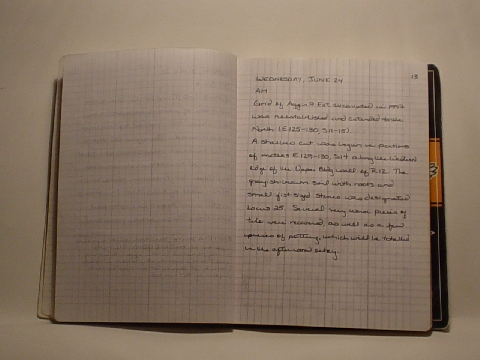 13
WEDNESDAY, JUNE 24
AM
Grid of Area P Ext. excavated in 1997
was reestablished and extended to the
North (E125-130, S11-15).
A shallow cut was begun in portions
of meters E129-130, S14 along the
edge of the Upper Bldg wall of R12. The
gray-brown soil with roots and
small fist sized stones was designated
Locus 25. Several very worn pieces of
tile were recovered, as well as a few
pieces of pottery, which will be totalled
in the afternoon entry.